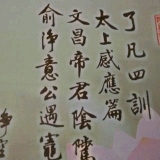 了凡四訓
太上感應篇
文昌帝君陰騭
俞淨意公遇竈
淨空